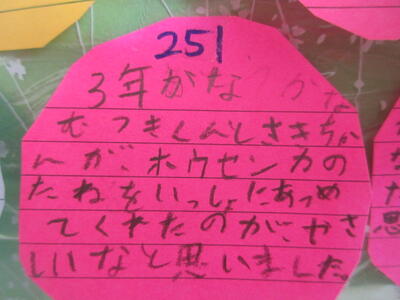 251
3年
むつきくんとさきちゃ
んが、ホウセンカの
たねをいっしょにあつめ
てくれたのが、やさ
しいなと思いました。
思